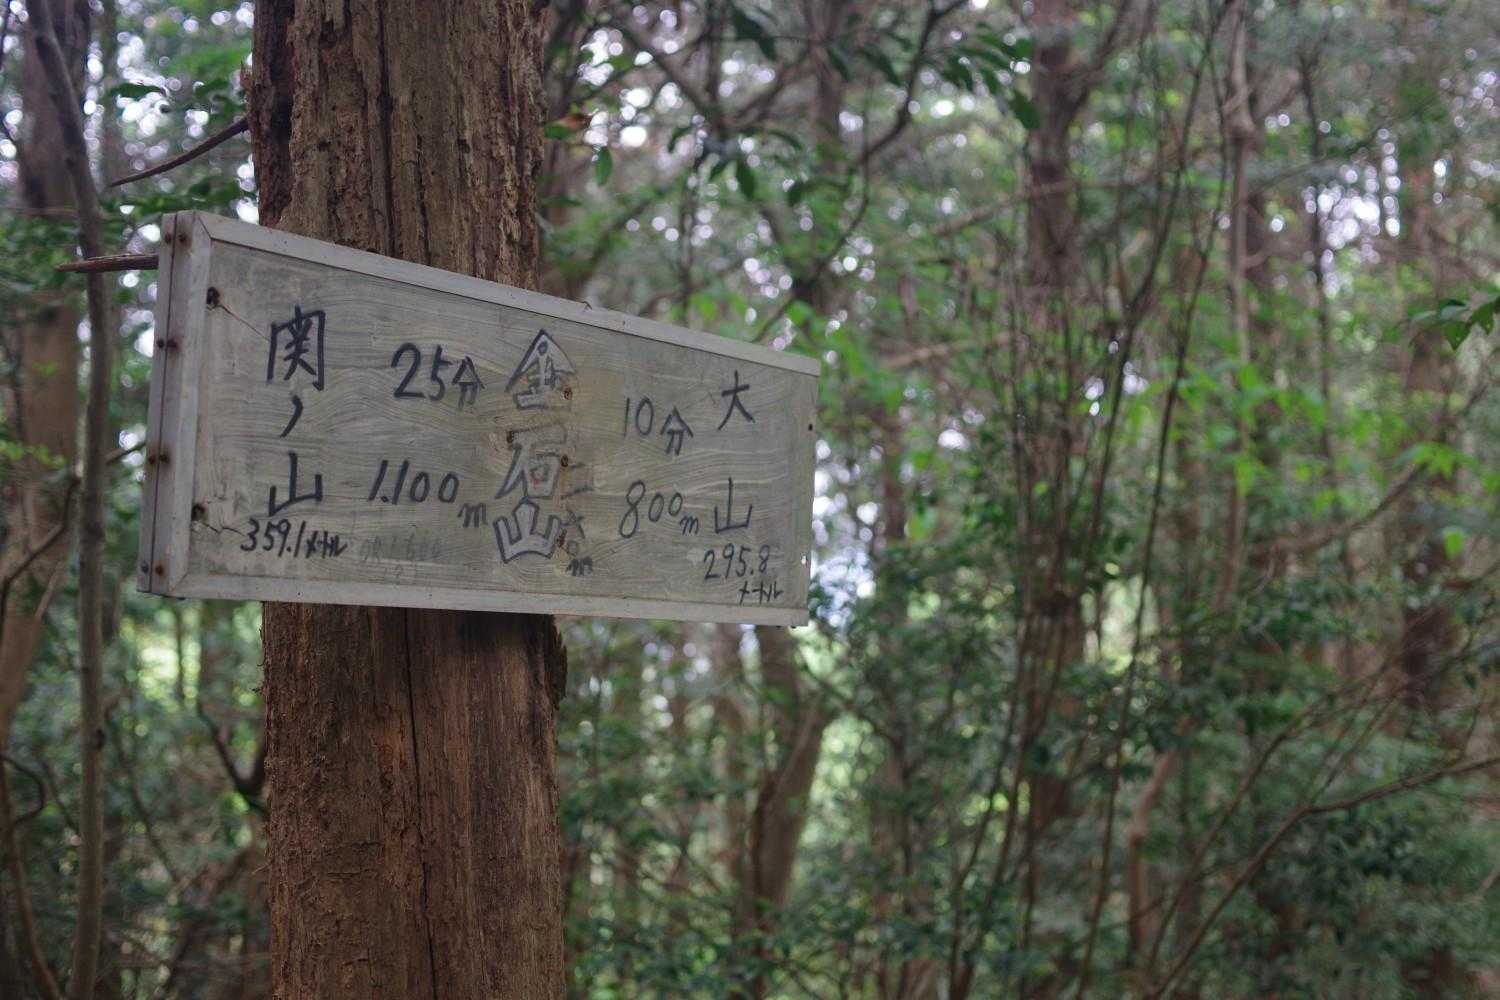 関ノ山
359.1メートル
25分
1.100m
金石山
10分
800m
大山
295.8
メートル